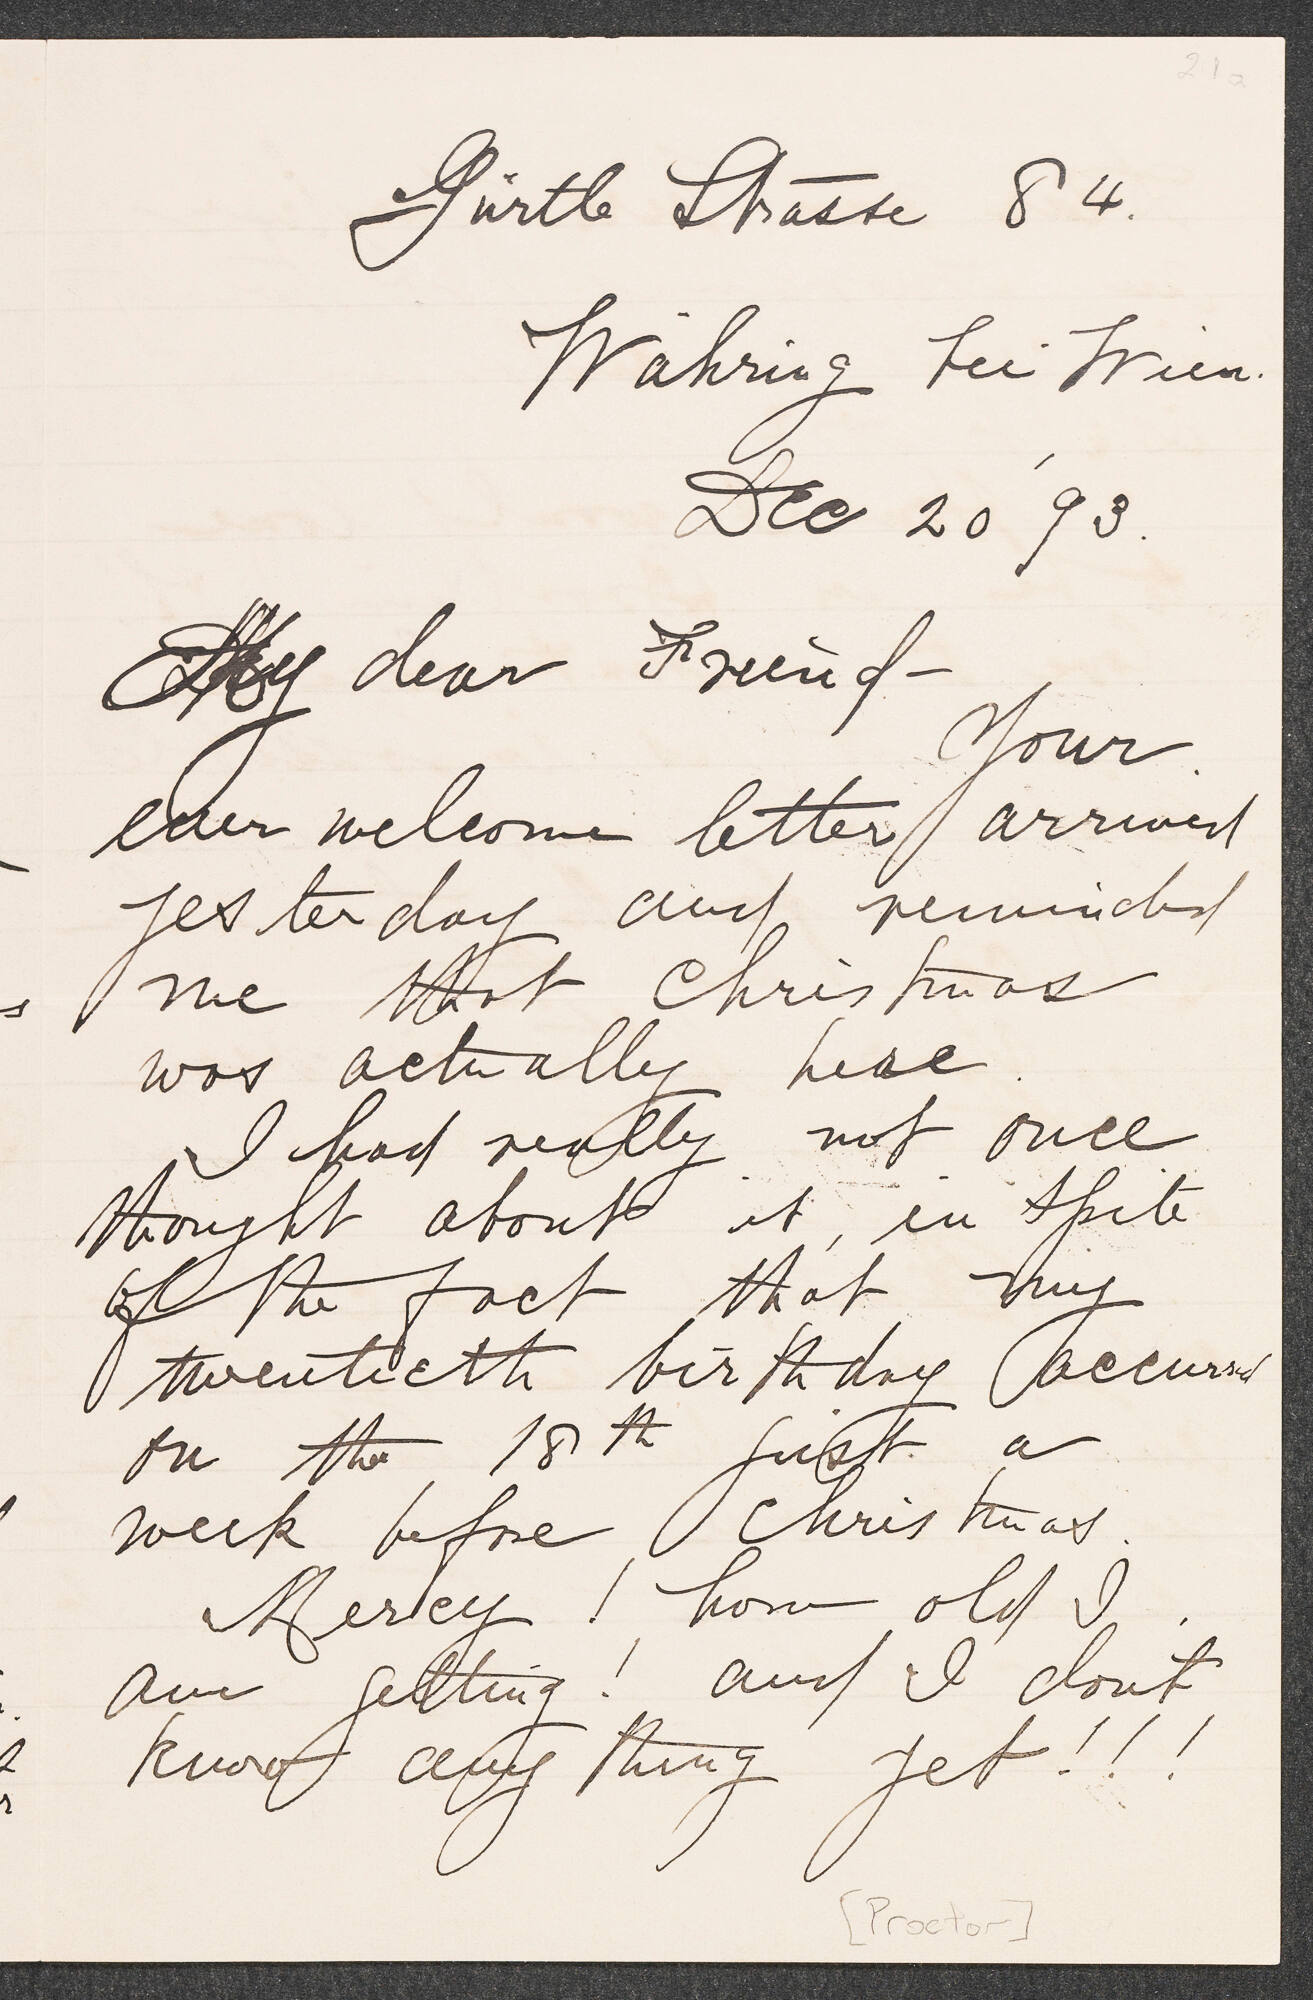 21a
Gürtle Strasse 84.
Währing bei Wien.
Dec 20 '93.
My dear Friend-
Your
ever welcome letter arrived
yesterday and reminded
me that Christmas
was actually here.
I had really not once
thought about it, in spite
of the fact that my
twentieth birthday occurred
on the 18th just a
week before Christmas.
Mercy! how old I
am getting! and I don't
know anything yet!!!
[Proctor]